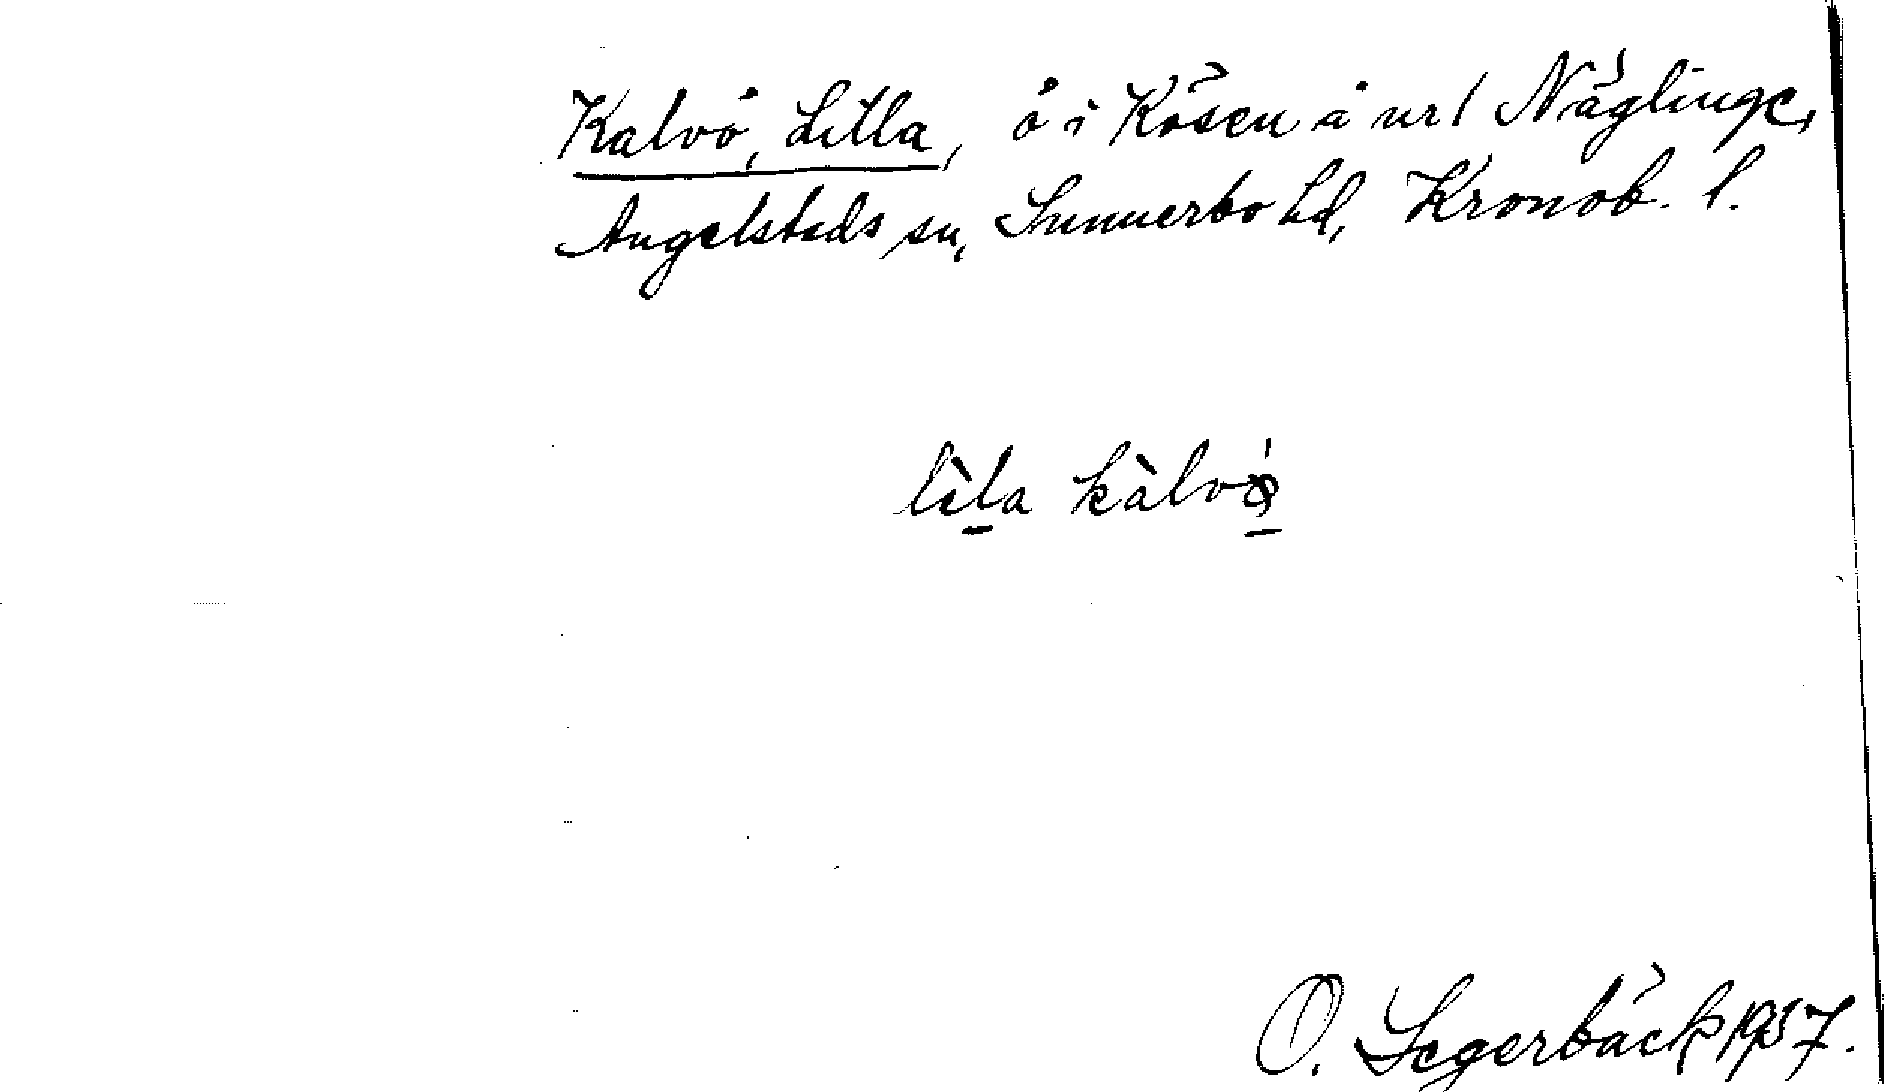 Kalvö, Lilla, ö i Kösen å nr 1 Näglinge,
Angelstads sn, Sunnerbo hd, Kronob. l.
lìla kàlvö́
O. Segerbäck 1937.